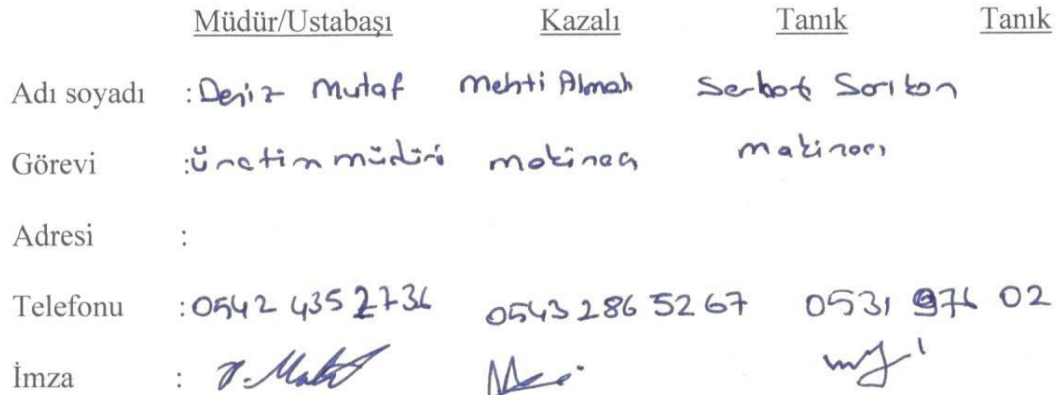 Müdür/Ustabaşı Kazalı Tanık Tanık
Adı soyadı : Deniz Mutaf Mehti Almalı Serbot Sorıkan
Görevi : üretim müdürü makinacı makinacı
Adresi :
Telefonu : 0542 435 2736 0543 286 52 67 0531 976 02
İmza :